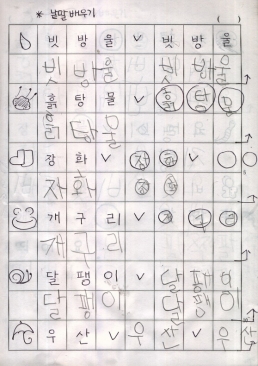 * 낱말 배우기 ( )
빗 방 울 ∨ 빗 방 울
빗 방 울 빗 방 울
흙 탕 물 ∨ 흙 탕 물
흙 탕 물
장 화 ∨ 장 화 ∨
자 화
개 구 리 ∨ 개 구
개 구 리
달 팽 이 ∨ 달 팽 이
달 팽 이 달 팽 이
우 산 ∨ 우 산 ∨ 우 산